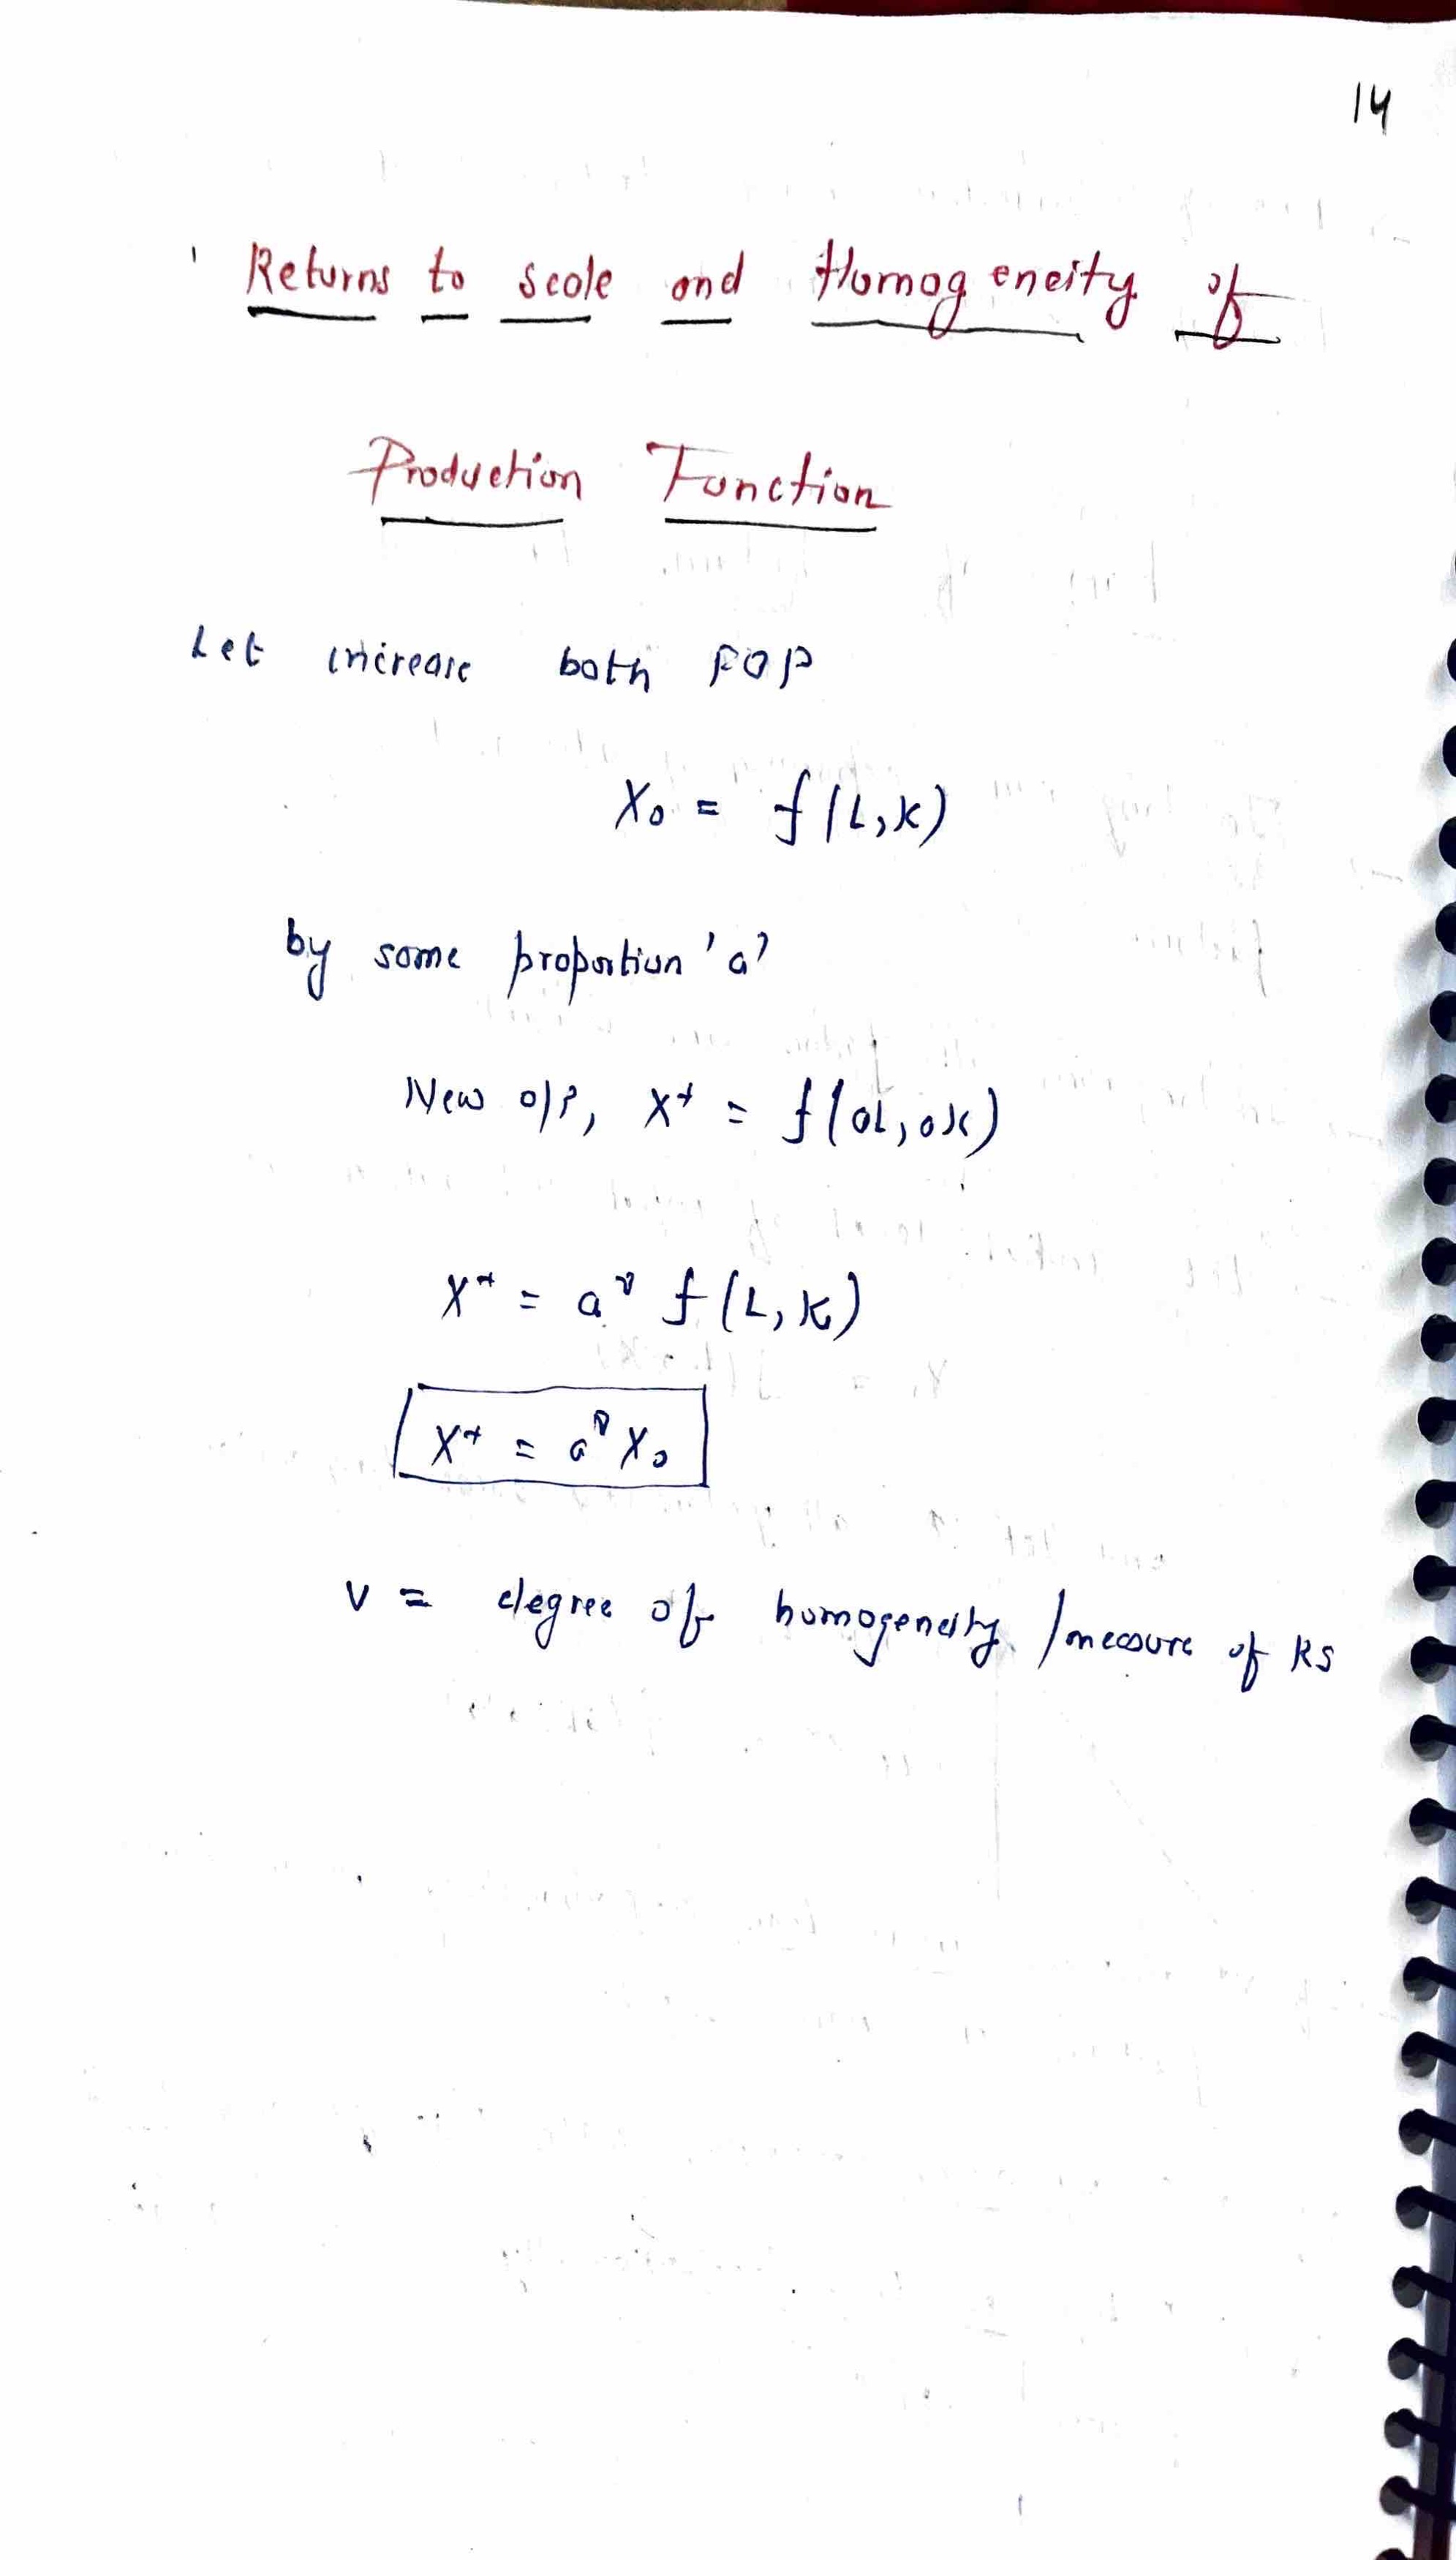 14
Returns to scale and Homogeneity of
Production Function
Let increase both FOP
X₀ = f(L,K)
by some proportion 'a'
New o/p, X* = f(aL, aK)
X* = aᵛ f(L, K)
X* = aᵛ X₀
v = degree of homogeneity / measure of RS